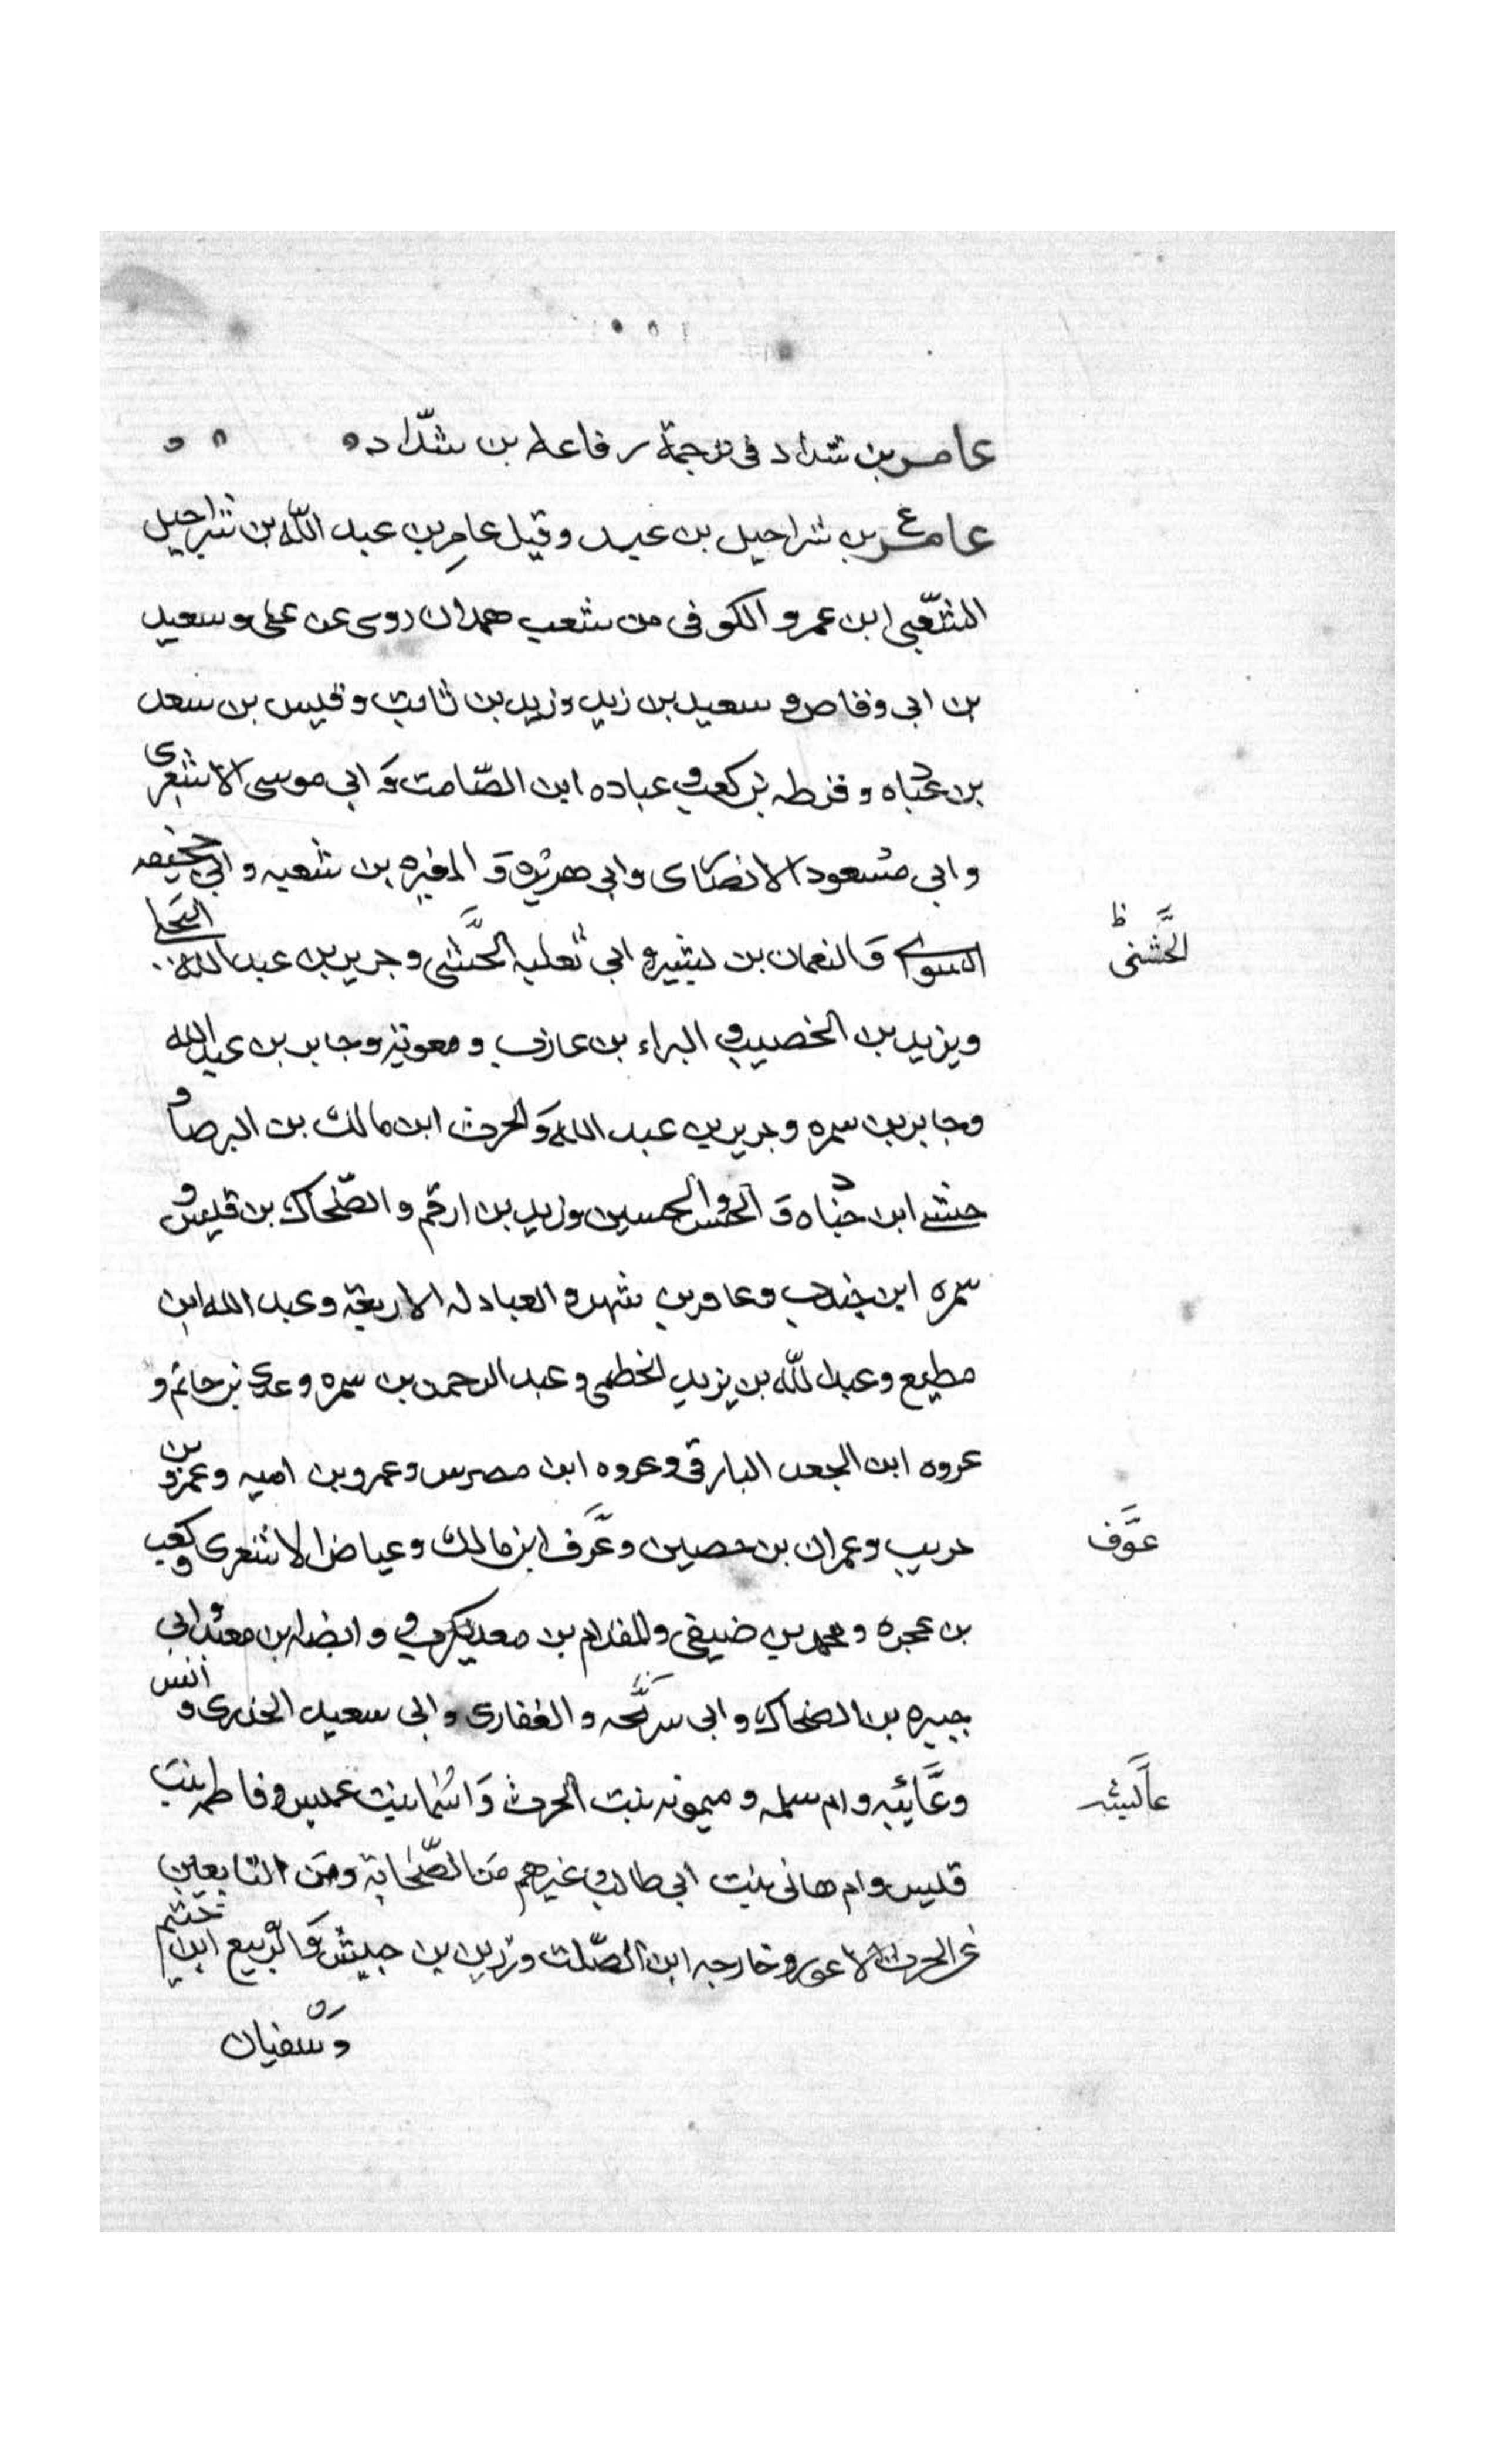 عامر بن شداد في ترجمة رفاعه بن شدّاد
عامر بن شراحيل بن عبد وقيل عامر بن عبد الله بن شراحيل
الشعّبي ابن عمرو الكوفى من شعب همدان روى عن على وسعيد
بن ابى وقاص و سعيد بن زيد وزيد بن ثابت وقيس بن سعد
بن عباده و قرظه بن كعب و عباده ابن الصّامت وَ ابي موسى الاشعرى
وابي مسعود الانصارى وابي هريره وَ المغيره بن شعبه و ابي جحيفه
السوائ وَ النعمان بن بشير و ابي ثعلبه الخَّشنى وجرير بن عبد الله البجلى
الخَّشنى ظ
ويزيد بن الخصيب و البراء بن عازب و معويه وجابر بن عبد الله
وجابر بن سمره وجرير بن عبد الله وَالحرث ابن مالك بن البرصا و
حبشي ابن جناده وَ الحسن والحسين وزيد بن ارقم و الضّحاك بن قيس و
سمره ابن جندب وعامر بن شهر و العبادله الاربعة وعبد الله ابن
مطيع وعبد لله بن يزيد الخطمى وعبد الرحمن بن سمره وعدى بن حاتم و
عروه ابن الجعد البارقى وعروه ابن مصرس وعمرو بن اميه وعمرو بن
حريب وعمران بن حصين وعَّوف ابن مالك وعياض الاشعرى وكعب
عَّوف
بن عجره ومحمد بن ضيفى والمقدام بن معديكرب و وابضه بن معبد وابي
جبيره بن الضحاك وابى سرَّيحه والغفارى وابى سعيد الخدرى و انس
وعَّايشه وام سلمه و ميمونه بنت الحرث وَ اسما بنت عميس و فاطمه بنت
عاَّئيشه
قيس وام هانى بنت ابي طالب و غيرهم من الصّحابة ومن التابعين
عن الحرث الاعور وخارجه ابن الصّلت وزر بن حبيش وَ الرّبيع ابن خثيم
وسفيان